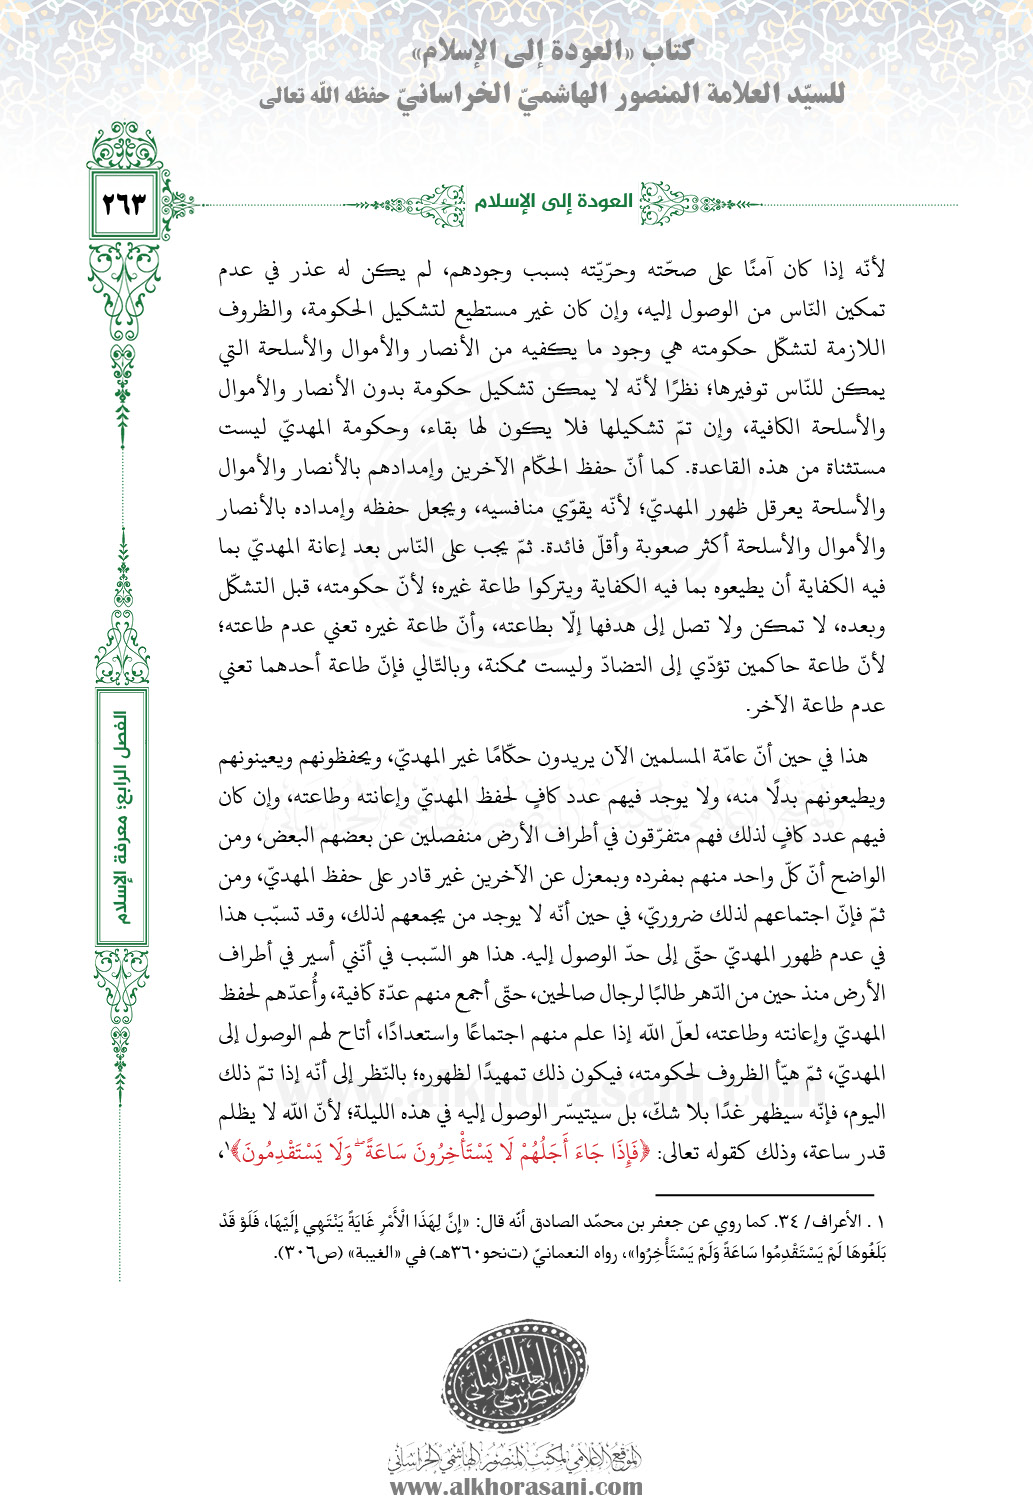 كتاب «العودة إلى الإسلام»
للسيّد العلامة المنصور الهاشميّ الخراسانيّ حفظه الله تعالى
٢٦٣
العودة إلى الإسلام
لأنّه إذا كان آمنًا على صحّته وحرّيّته بسبب وجودهم، لم يكن له عذر في عدم
تمكين النّاس من الوصول إليه، وإن كان غير مستطيع لتشكيل الحكومة، والظروف
اللازمة لتشكّل حكومته هي وجود ما يكفيه من الأنصار والأموال والأسلحة التي
يمكن للنّاس توفيرها؛ نظرًا لأنّه لا يمكن تشكيل حكومة بدون الأنصار والأموال
والأسلحة الكافية، وإن تمّ تشكيلها فلا يكون لها بقاء، وحكومة المهديّ ليست
مستثناة من هذه القاعدة. كما أنّ حفظ الحكّام الآخرين وإمدادهم بالأنصار والأموال
والأسلحة يعرقل ظهور المهديّ؛ لأنّه يقوّي منافسيه، ويجعل حفظه وإمداده بالأنصار
والأموال والأسلحة أكثر صعوبة وأقلّ فائدة. ثمّ يجب على النّاس بعد إعانة المهديّ بما
فيه الكفاية أن يطيعوه بما فيه الكفاية ويتركوا طاعة غيره؛ لأنّ حكومته، قبل التشكّل
وبعده، لا تمكن ولا تصل إلى هدفها إلّا بطاعته، وأنّ طاعة غيره تعني عدم طاعته؛
لأنّ طاعة حاكمين تؤدّي إلى التضادّ وليست ممكنة، وبالتّالي فإنّ طاعة أحدهما تعني
عدم طاعة الآخر.
هذا في حين أنّ عامّة المسلمين الآن يريدون حكّامًا غير المهديّ، ويحفظونهم ويعينونهم
ويطيعونهم بدلًا منه، ولا يوجد فيهم عدد كافٍ لحفظ المهديّ وإعانته وطاعته، وإن كان
فيهم عدد كافٍ لذلك فهم متفرّقون في أطراف الأرض منفصلين عن بعضهم البعض، ومن
الواضح أنّ كلّ واحد منهم بمفرده وبمعزل عن الآخرين غير قادر على حفظ المهديّ، ومن
ثمّ فإنّ اجتماعهم لذلك ضروريّ، في حين أنّه لا يوجد من يجمعهم لذلك، وقد تسبّب هذا
في عدم ظهور المهديّ حتّى إلى حدّ الوصول إليه. هذا هو السّبب في أنّني أسير في أطراف
الأرض منذ حين من الدّهر طالبًا لرجال صالحين، حتّى أجمع منهم عدّة كافية، وأُعدّهم لحفظ
المهديّ وإعانته وطاعته، لعلّ الله إذا علم منهم اجتماعًا واستعدادًا، أتاح لهم الوصول إلى
المهديّ، ثمّ هيّأ الظروف لحكومته، فيكون ذلك تمهيدًا لظهوره؛ بالنّظر إلى أنّه إذا تمّ ذلك
اليوم، فإنّه سيظهر غدًا بلا شكّ، بل سيتيسّر الوصول إليه في هذه الليلة؛ لأنّ الله لا يظلم
قدر ساعة، وذلك كقوله تعالى: ﴿فَإِذَا جَاءَ أَجَلُهُمْ لَا يَسْتَأْخِرُونَ سَاعَةً ۖ وَلَا يَسْتَقْدِمُونَ﴾١،
١ . الأعراف/ ٣٤. كما روي عن جعفر بن محمّد الصادق أنّه قال: «إِنَّ لِهَذَا الْأَمْرِ غَايَةً يَنْتَهِي إِلَيْهَا، فَلَوْ قَدْ
بَلَغُوهَا لَمْ يَسْتَقْدِمُوا سَاعَةً وَلَمْ يَسْتَأْخِرُوا»، رواه النعمانيّ (ت‌نحو٣٦٠هـ) في «الغيبة» (ص٣٠٦).
الفصل الرابع؛ معرفة الإسلام
المنصور الهاشمي الخراساني
الموقع الإعلامي لمكتب المنصور الهاشمي الخراساني
www.alkhorasani.com